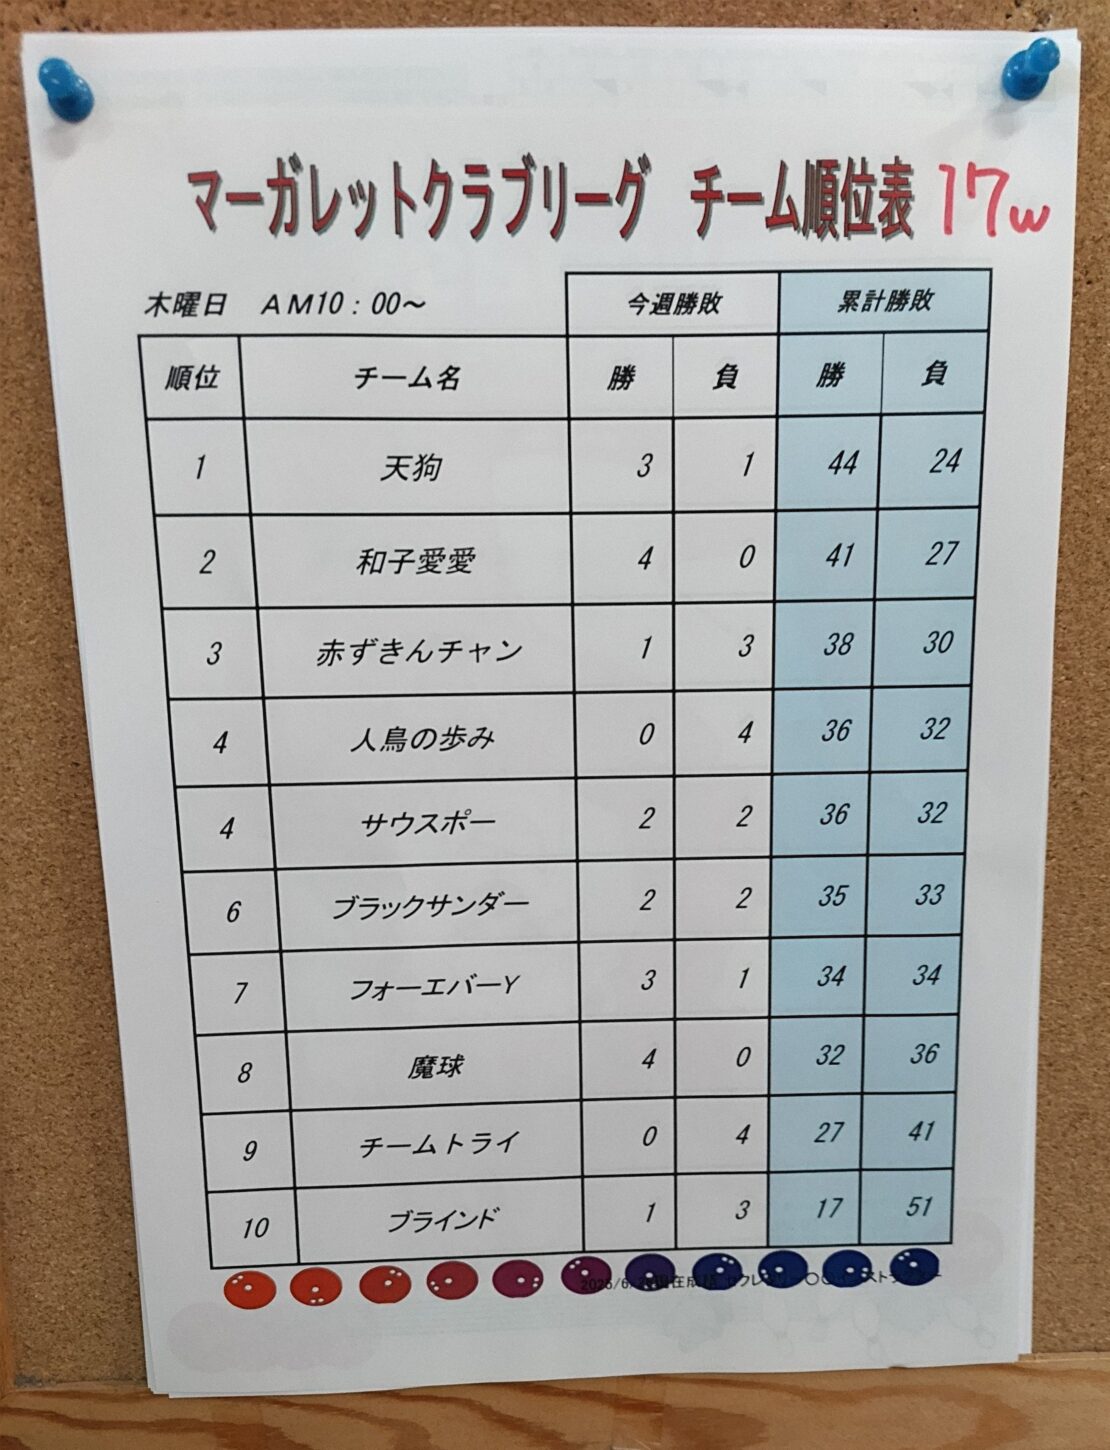 マーガレットクラブリーグ チーム順位表 17w
木曜日 AM10：00～ 今週勝敗 累計勝敗
順位 チーム名 勝 負 勝 負
1 天狗 3 1 44 24
2 和子愛愛 4 0 41 27
3 赤ずきんチャン 1 3 38 30
4 人鳥の歩み 0 4 36 32
4 サウスポー 2 2 36 32
6 ブラックサンダー 2 2 35 33
7 フォーエバーY 3 1 34 34
8 魔球 4 0 32 36
9 チームトライ 0 4 27 41
10 ブラインド 1 3 17 51
2025/6/